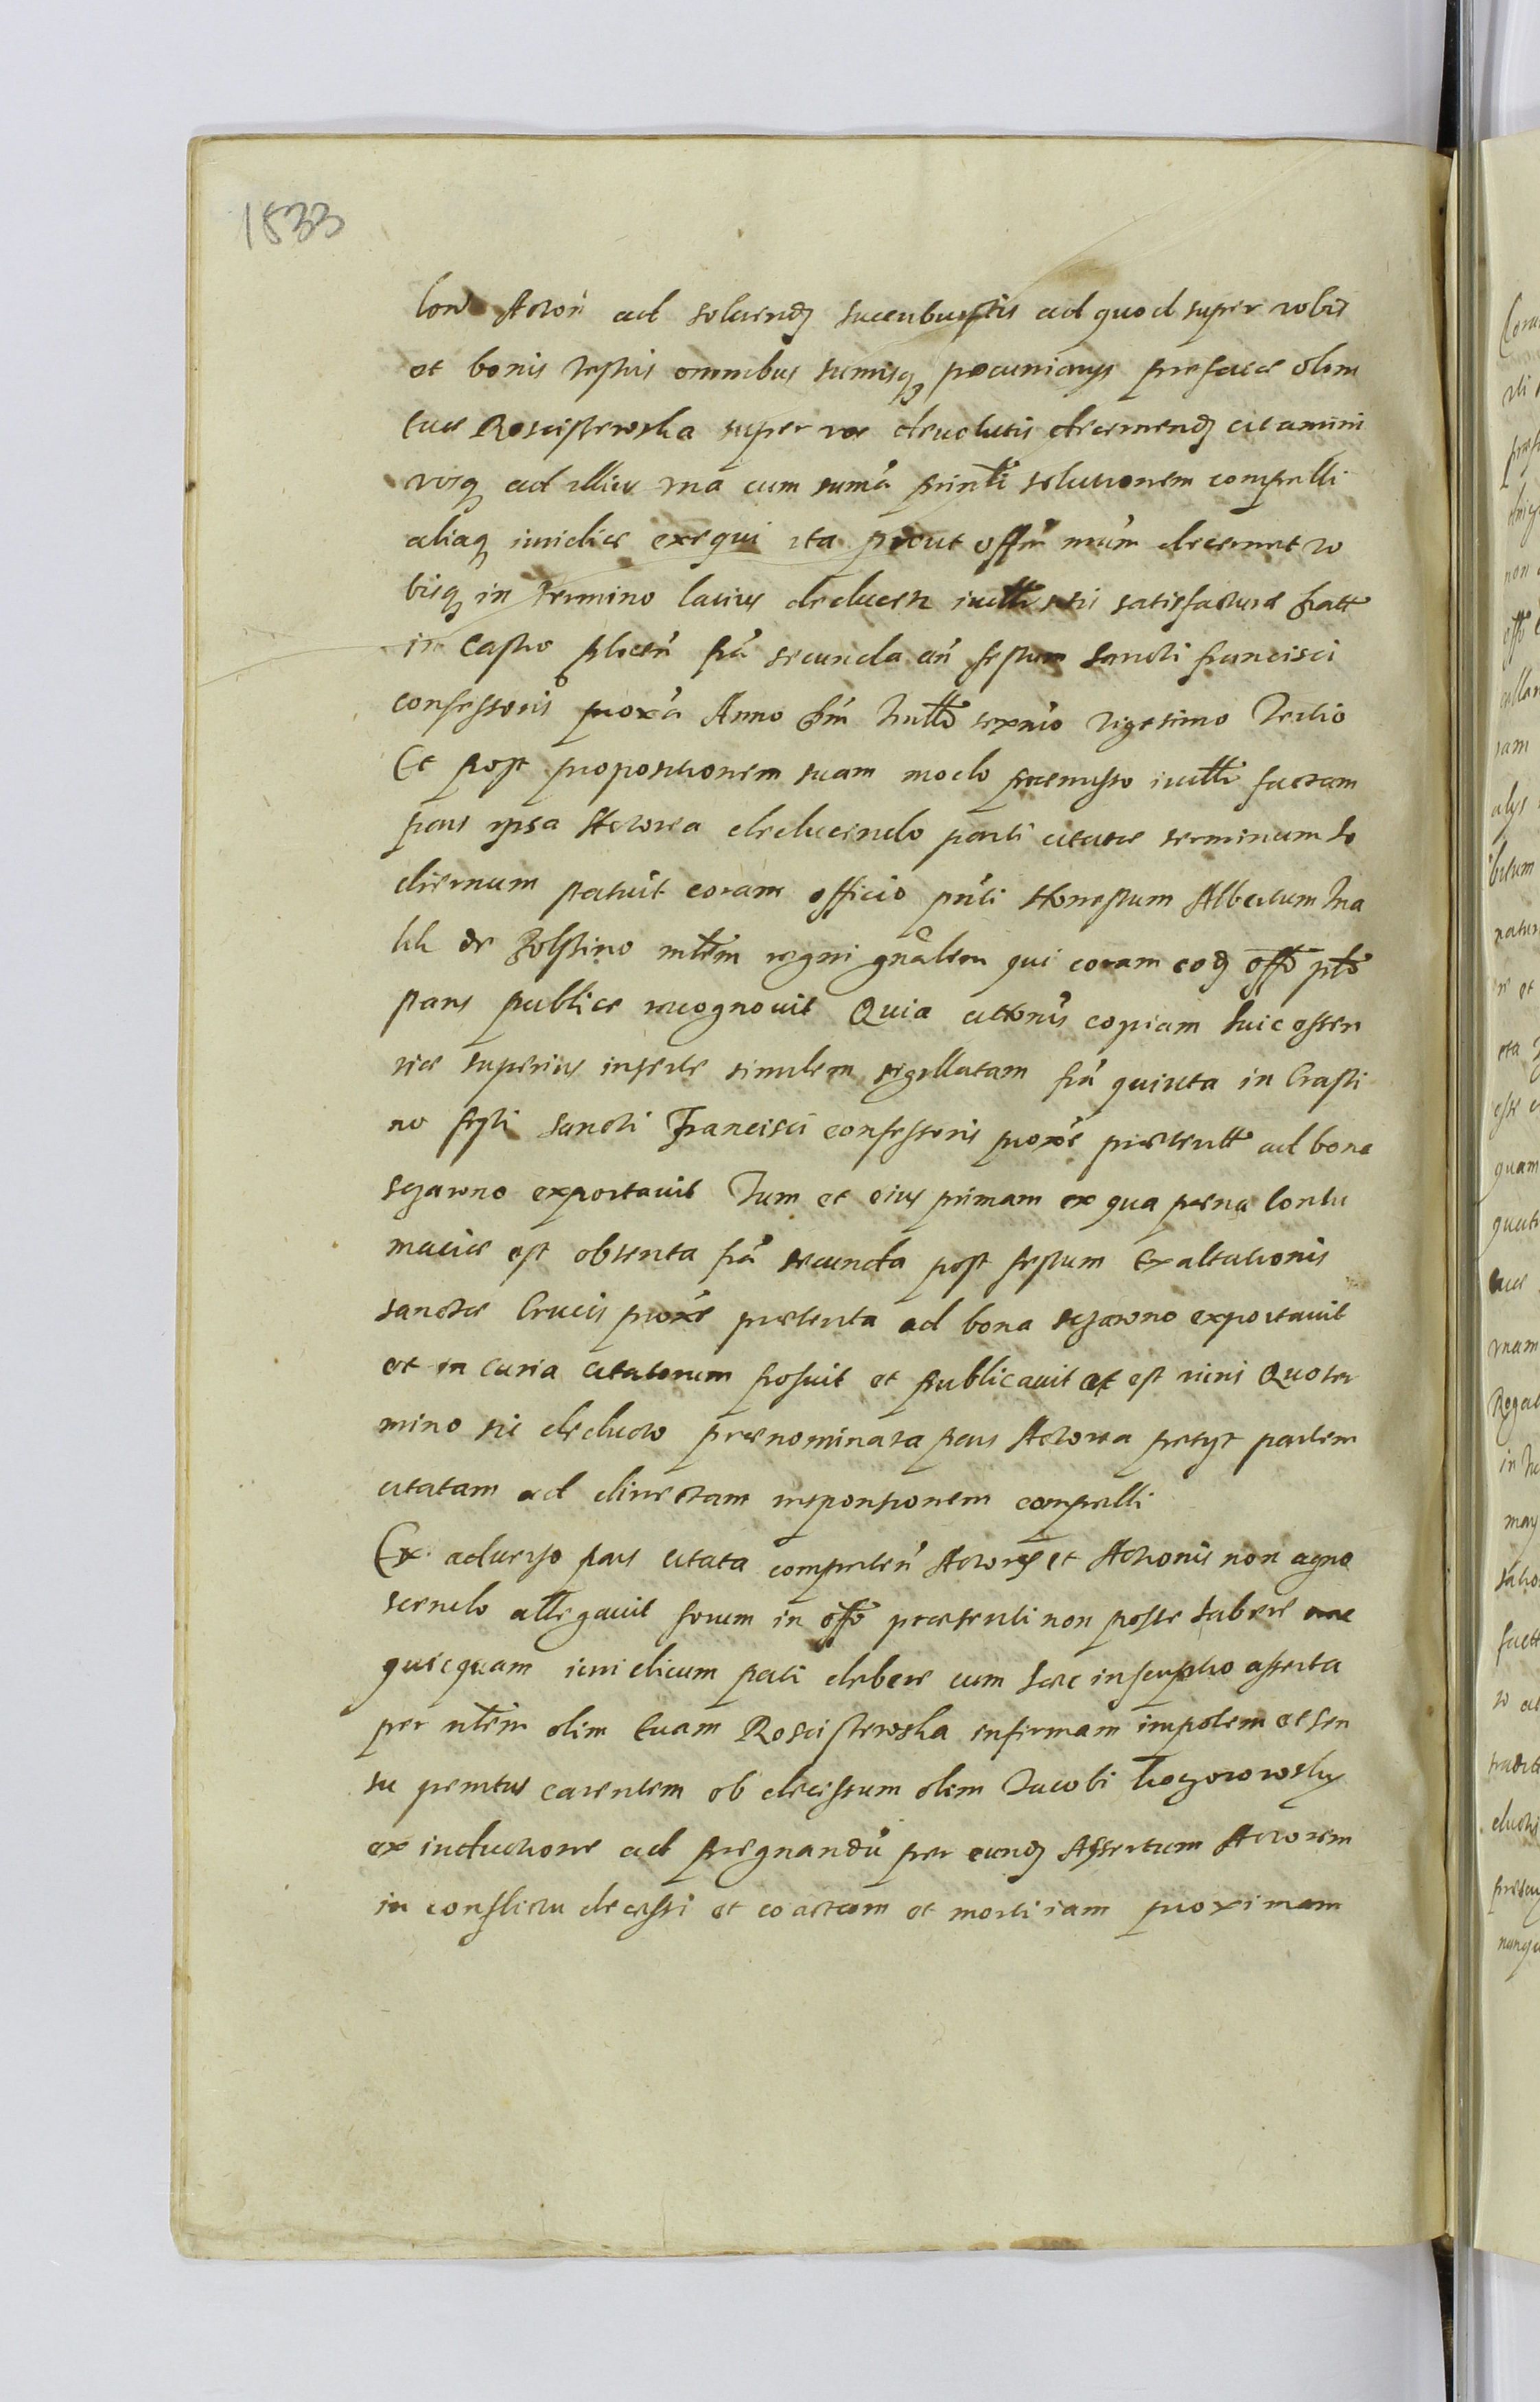 1833
Actori ad soluend succubuistis ad quod super vobis
et bonis vestris omnibus sumisq pecuniarys prefatæ olim
Euæ Rosciszewska super vos deuolutis decernend citamini
vosq ad illius vna cum suma prinli solutionem compelli
aliaq iuridice exequi ita prout offm nrum decernet vo
bisq in termino latius deducet iudlr estis satisfacturi Datt
in Castro plocen fra secunda an festum Sancti Francisci
confessoris proxa Anno Dni Millo sexcno vigesimo Tertio
Et post propositionem suam modo præmisso iudlr factam
pars ipsa Actorea deducendo parti citatæ terminum ho
diernum statuit coram officio pnti Honestum Albertum Ma
lik de Bolstino mlem regni gnalem qui coram eod offo pto
stans publice recognouit Quia cittonis copiam huic offen
riæ superius insertæ similem sigillatam fra quinta in Crasti
no festi Sancti Francisci confessoris proxe præteritt ad bona
exportauit Tum et eius primam ex qua pæna Contu
maciæ est obtenta fra secunda post festum Exaltationis
sanctæ Crucis proxe præterita ad bona exportauit
et in curia citatorum posuit et publicauit et est nini Quo ter
mino sic deducto prænominata pars Actorea petyt partem
citatam ad directam responsionem compelli
Ex aduerso pars citata competen Actoris et Actionis non agno
scendo allegauit forum in offo præsenti non posse habere nec
quicquam iuridicum pati debere cum hæc inscriptio asserta
per olim Euam Rosciszewska infirmam impotem et sen
su penitus carentem ob decessum olim Jacobi
ex inductione ad pregnandu per eund Assertum Actorem
in conflictu decessi et coactam et morti iam proximam